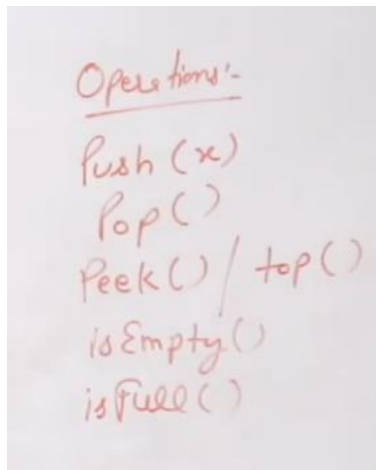 Operations:-
Push (x)
Pop()
Peek() / top()
isEmpty()
isFull()